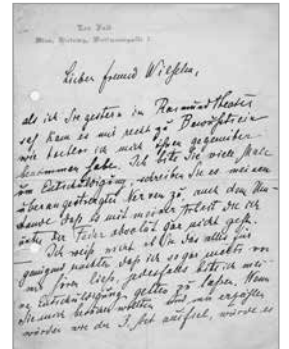 Leo Fall
Wien, Hietzing,
Lieber Freund Wilhelm,
als ich Sie gestern im Raimundtheater
sah kam es mir recht zu Bewußtsein
wie ich mich Ihnen gegenüber
benommen habe. Ich bitte Sie viele Male
um Entschuldigung, schreiben Sie es meinen
überangestrengten Nerven zu auch dem Um-
stande daß es mit meiner Arbeit die ich
unter der Feder absolut gar nicht geht.
Ich weiß nicht ob Sie das alles mir
genügend machten daß ich so gar nichts von
mir hören ließ, jedesfalls bitte ich mei-
ne Entschuldigung gelten zu laßen. Wenn
Sie mich besuchen wollten und mir erzählen
würden wie der 3. Akt ausfiel, würde es